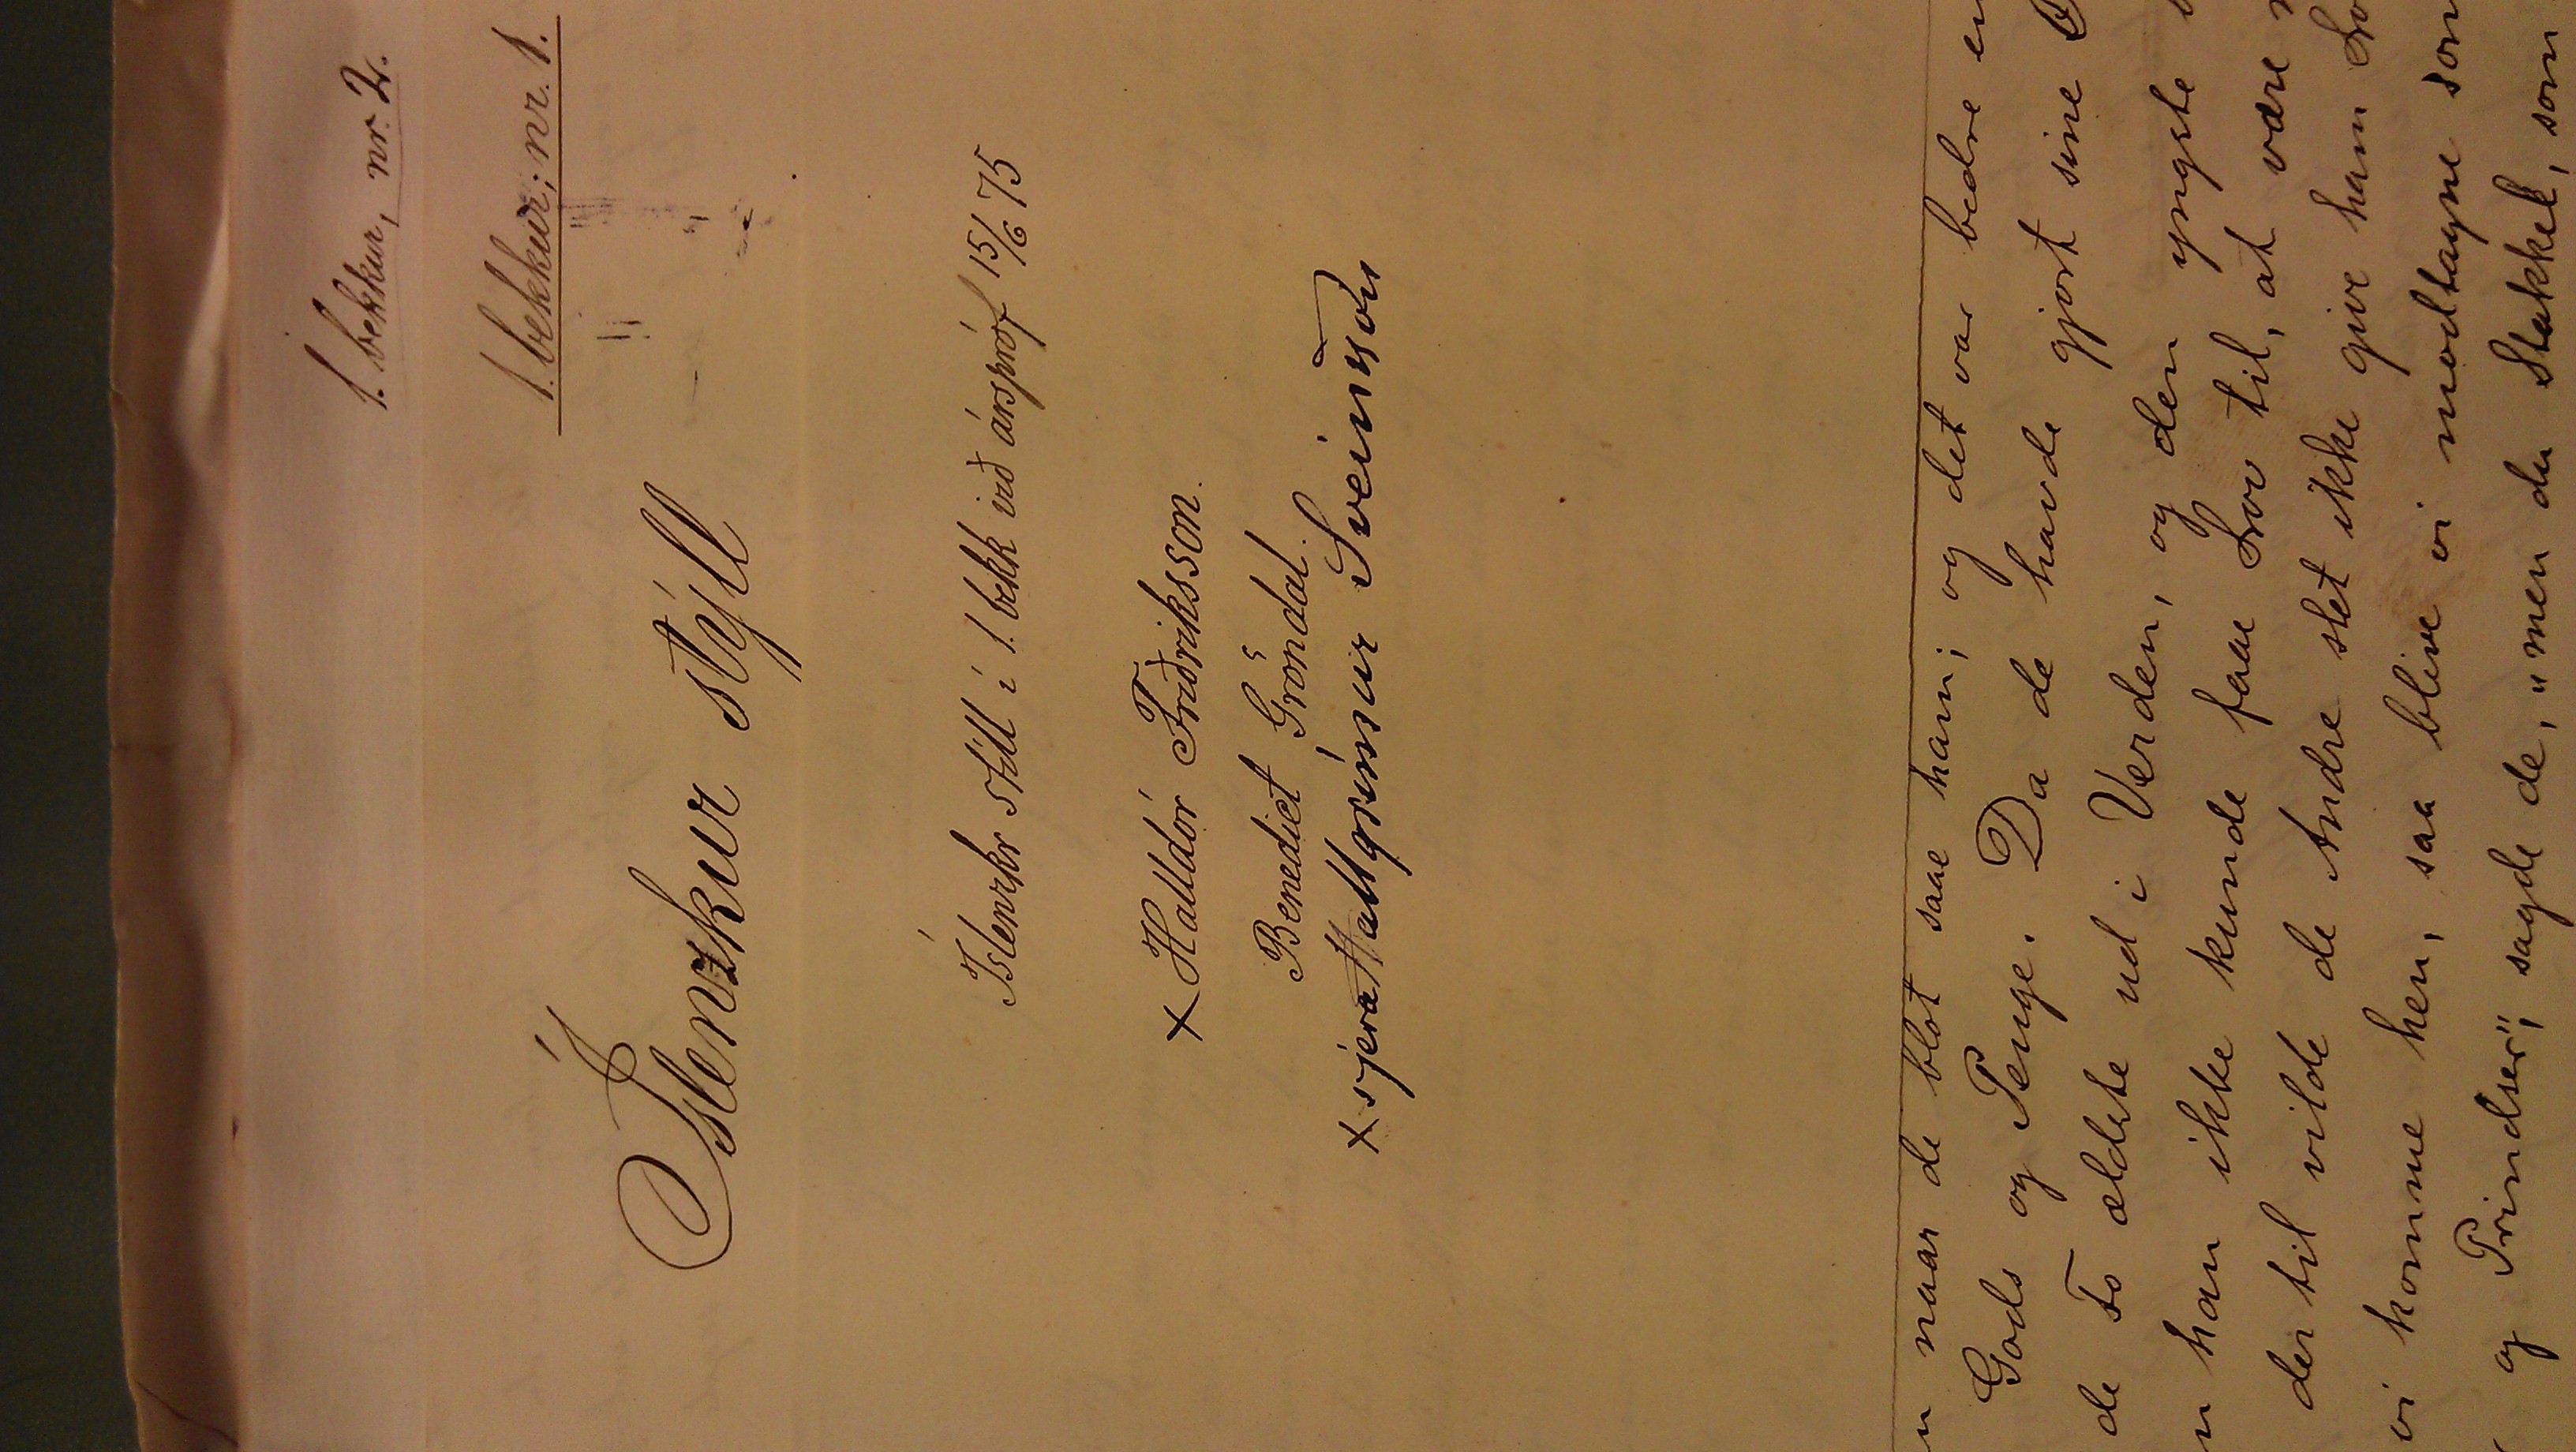 1. bekkur, nr. 2.
1. bekkur; nr. 1.
Íslenzkur stýll
Íslenzkr stíll í 1. bekk við árspróf 15/6 75
× Halldór Friðriksson.
Benedict Gröndal.
× sjera Hallgrímur Sveinsson
n naar de blot saae ham; og det var bedre en
Gods og Penge. Da de havde gjort sine
de to ældste ud i Verden, og den yngste
n han ikke kunde faae Lov til, at være
der til vilde de Andre slet ikke give ham Lo
vi komme hen, saa blive vi modtagne som
og Prindser", sagde de, "men du Stakkel, som